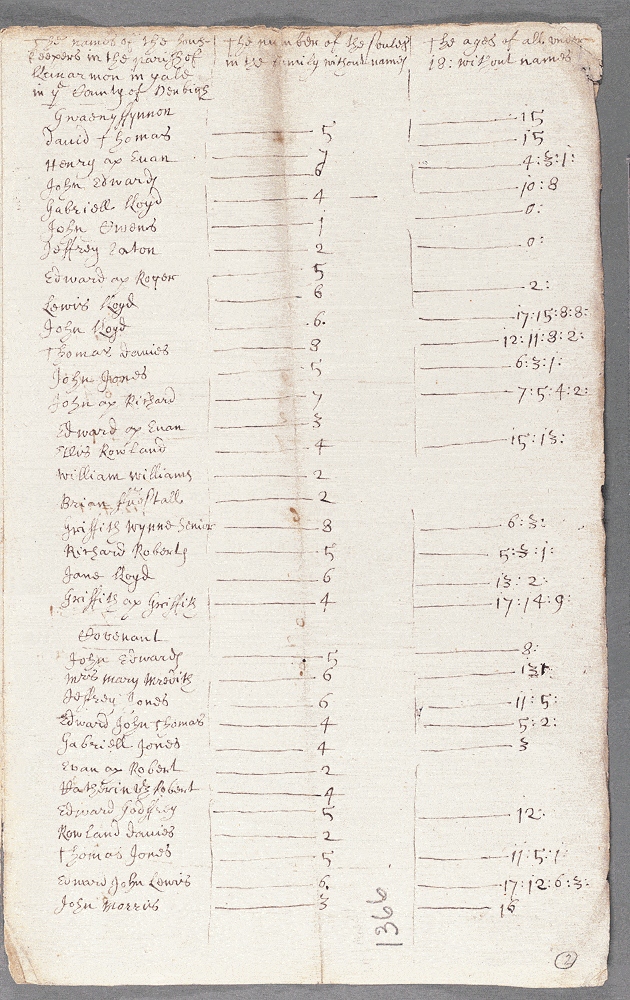 The names of the hous- The number of the soules The ages of all under
keepers in the parish of in the family without names 18: without names
Llanarmon in yale
in ye County of Denbigh
Gwaenyffynnon
David Thomas 5 15
Henry ap Evan 7 15
John Edwards 6 4:3:1:
Gabriell Lloyd 4 10:8
John Owens 1 0:
Jeffrey Eaton 2 0:
Edward ap Roger 5
Lewis Lloyd 6 2:
John Lloyd 6. 17:15:8:8:
Thomas Davies 8 12:11:8:2:
John Jones 5 6:3:1:
John ap Richard 7 7:5:4:2:
Edward ap Evan 3
Ellis Rowland 4 15:13:
William Williams 2
Brian 2
Griffith Wynne Senior 8 6:3:
Richard Roberts 5 5:3:1:
Jane Lloyd 6 13:2:
Griffith ap Griffith 4 17:14:9:
Covenant
John Edwards 5 8:
Mrs Mary Meredith 6 13
Jeffrey Jones 6 11:5:
Edward John Thomas 4 5:2:
Gabriell Jones 4 3
Evan ap Robert 2
Katherin vz Robert 4
Edward Godffrey 5 12:
Rowland Davies 2
Thomas Jones 5 11:5:1:
Edward John Lewis 6. 17:12:6:3:
John Morris 3 16
1366
2